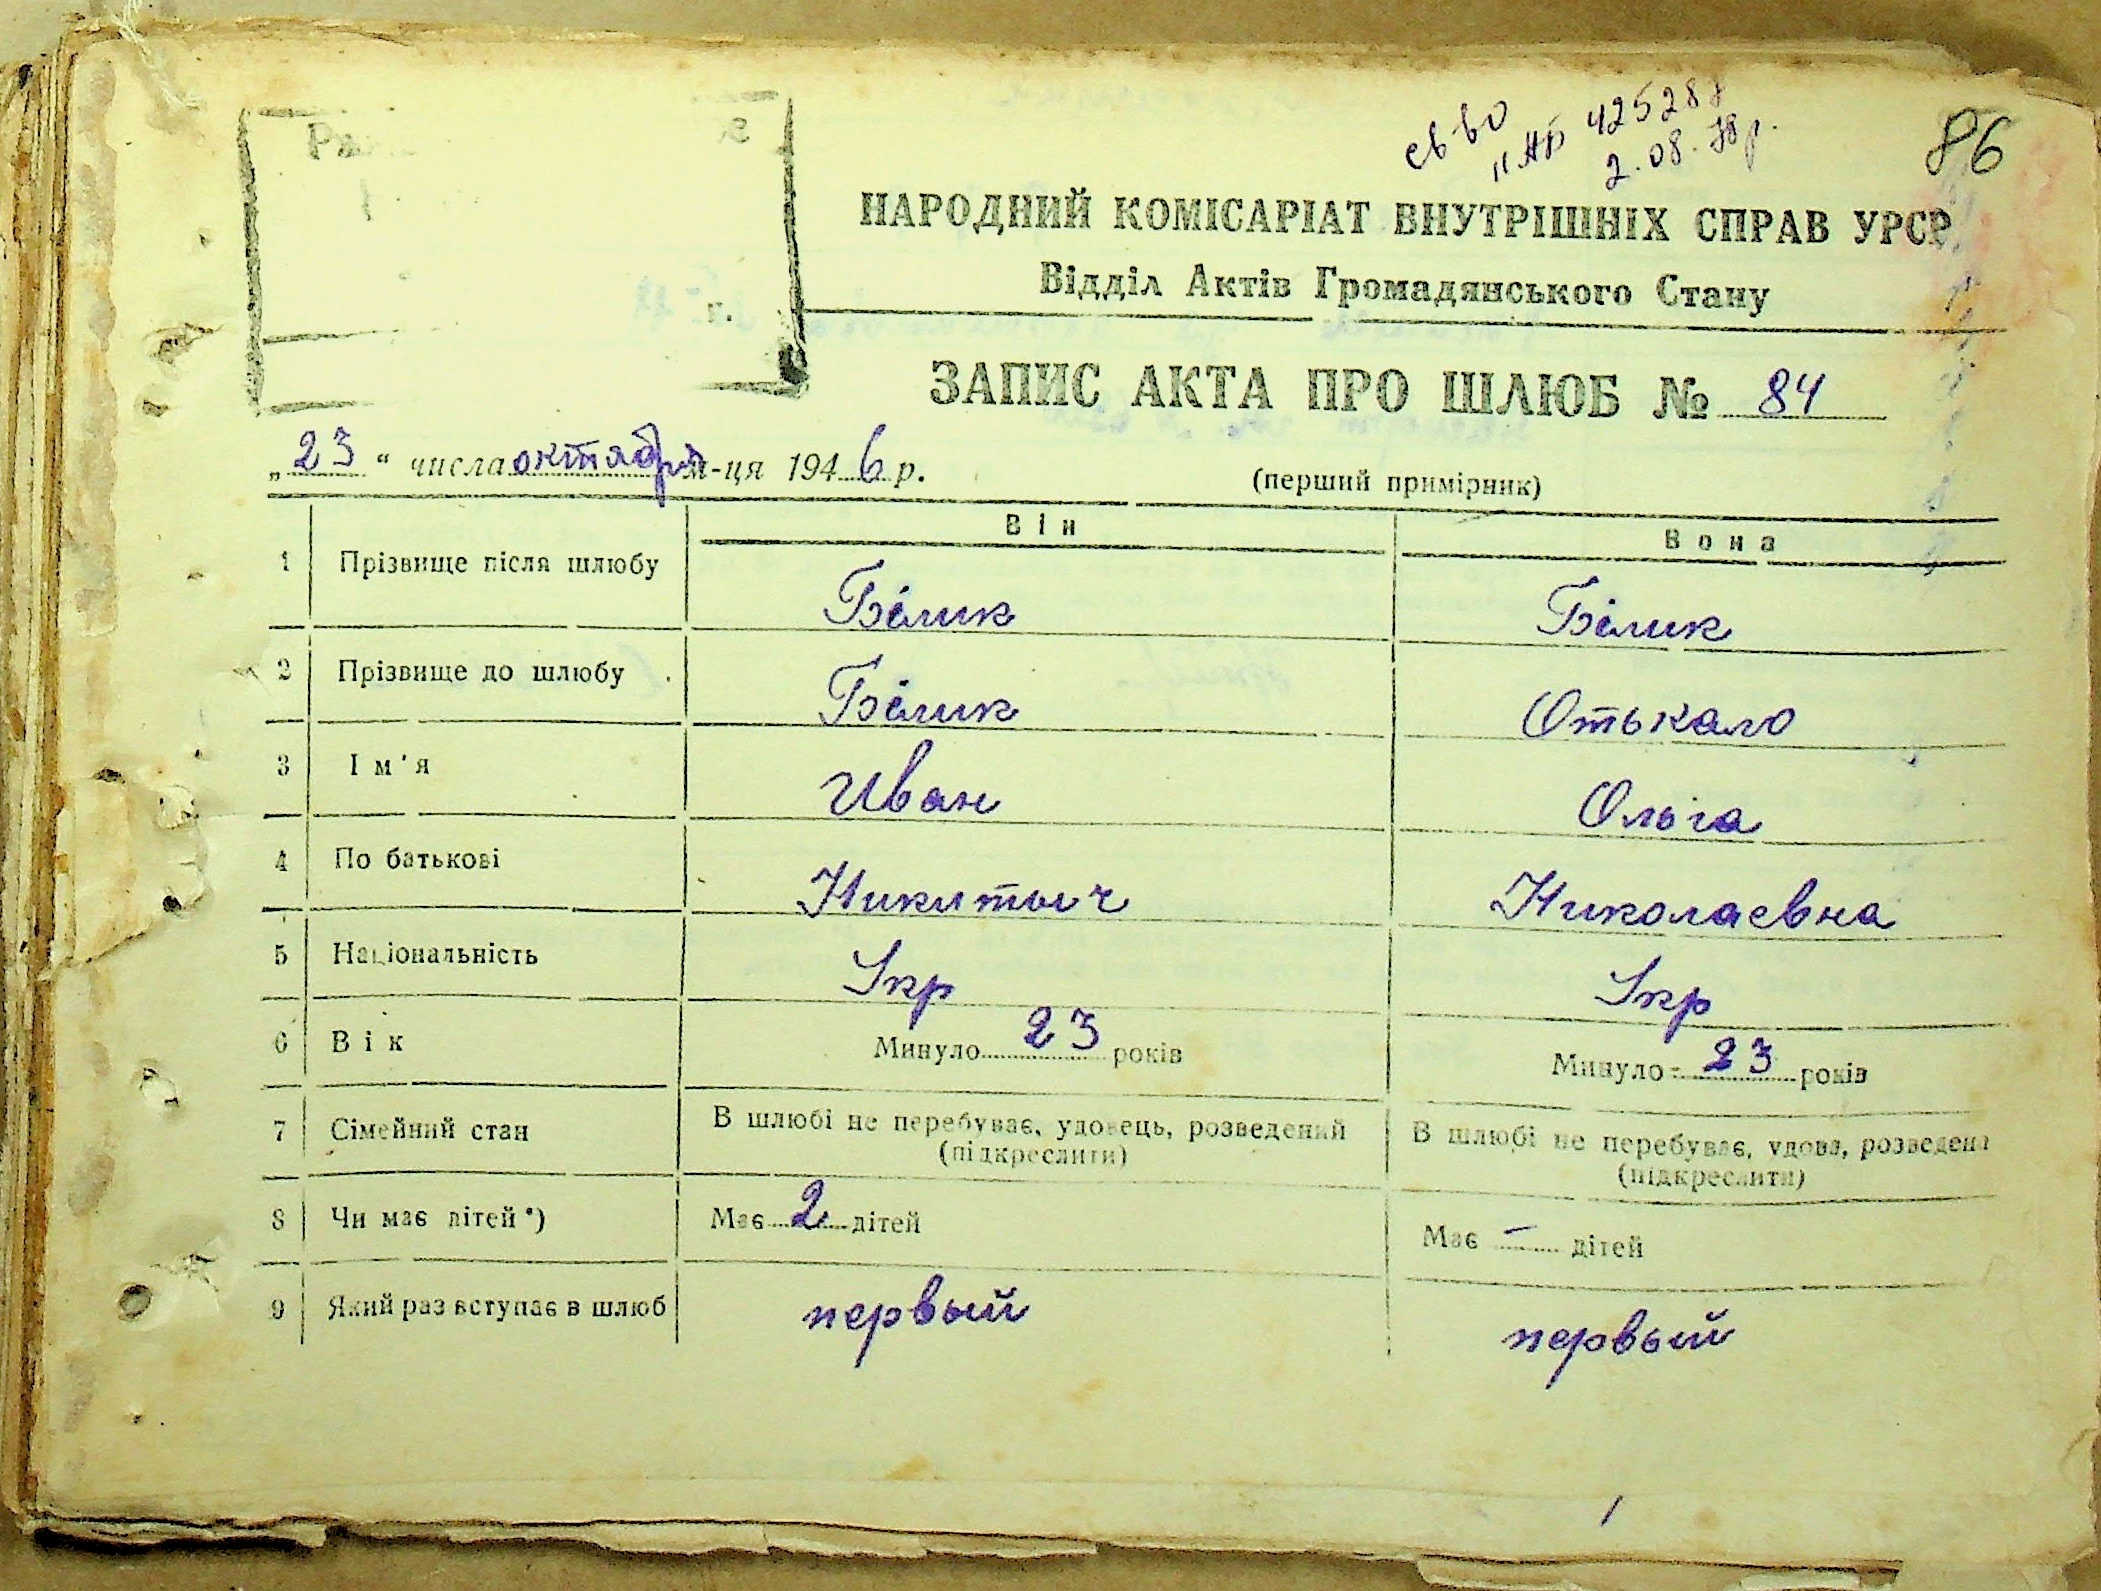 св-во
II АБ 425287
2.08.78р.
86
НАРОДНИЙ КОМІСАРІАТ ВНУТРІШНІХ СПРАВ УРСР
Відділ Актів Громадянського Стану
ЗАПИС АКТА ПРО ШЛЮБ № 84
„23“ числа октября м-ця 1946 р.
(перший примірник)
Він Вона
1 Прізвище після шлюбу Бєлик Бєлик
2 Прізвище до шлюбу Бєлик Отькало
3 Ім'я Иван Ольга
4 По батькові Никитыч Николаевна
5 Національність Укр Укр
6 Вік Минуло 23 років Минуло 23 років
7 Сімейний стан В шлюбі не перебуває, удовець, розведений В шлюбі не перебуває, удова, розведена
(підкреслити) (підкреслити)
8 Чи має дітей*) Має 2 дітей Має – дітей
9 Який раз вступає в шлюб первый первый